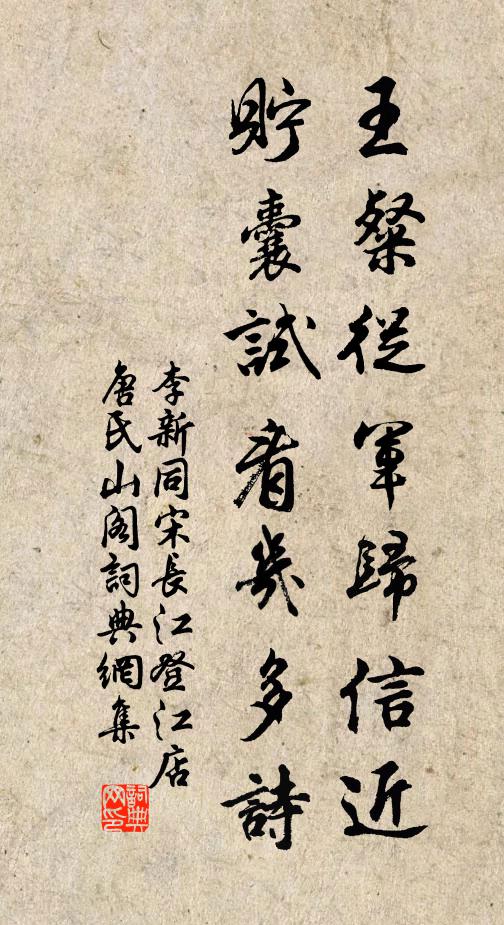 王粲從軍歸信近
貯囊試看幾多詩
李新同宋長江登江店
唐氏山閣詞典網集
詞典網印